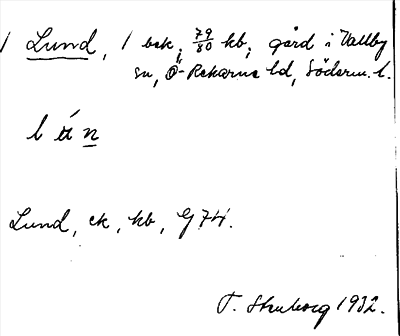 1 Lund, 1 bsk, 79/80 kb, gård i Vallby
sn, Ö-Rekarne hd, Söderm. l.
l ú n
Lund, ek, kb, G 74.
1932.